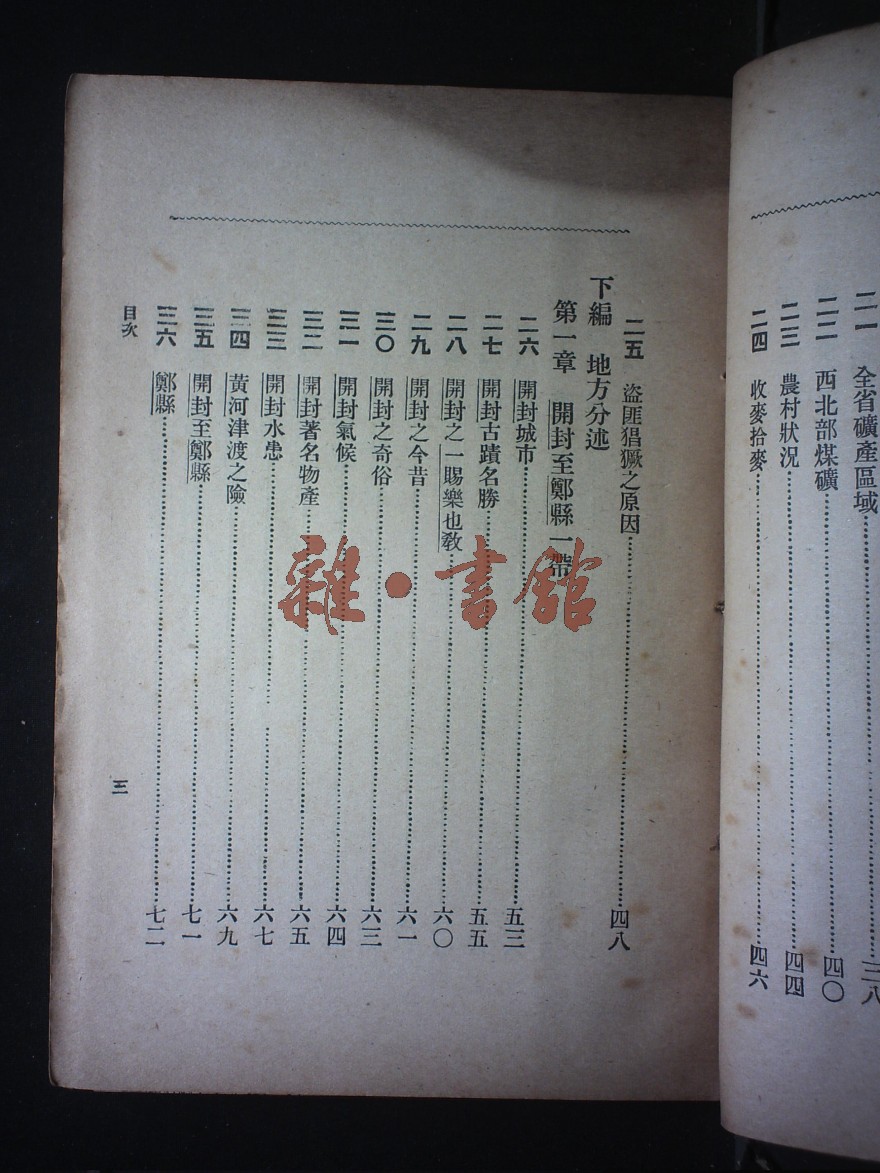 二一 全省礦產區域 三八
二二 西北部煤礦 四〇
二三 農村狀況 四四
二四 收麥拾麥 四六
二五 盜匪猖獗之原因 四八
下編 地方分述
第一章 開封至鄭縣一帶
二六 開封城市 五三
二七 開封古蹟名勝 五五
二八 開封之一賜樂也教 六〇
二九 開封之今昔 六一
三〇 開封之奇俗 六三
三一 開封氣候 六四
三二 開封著名物產 六五
三三 開封水患 六七
三四 黃河津渡之險 六九
三五 開封至鄭縣 七一
三六 鄭縣 七二
目次
三
雜·書館